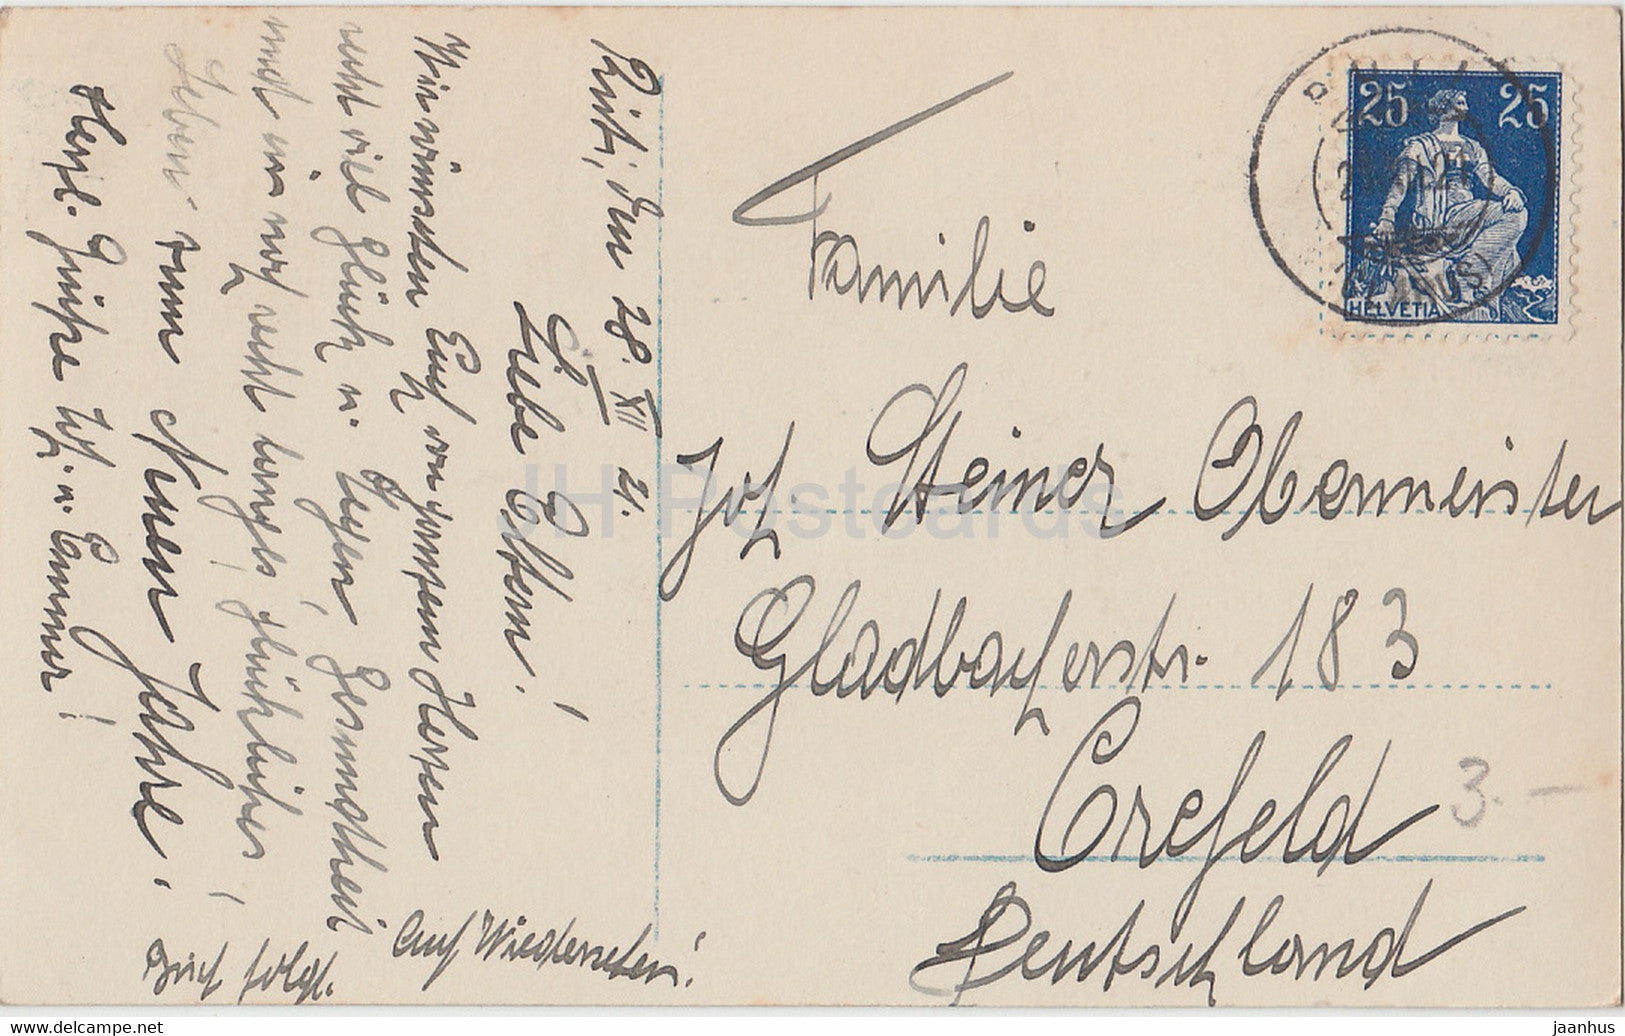 Rüti, den 28. XII 21.
Liebe Eltern!
Wir wünschen Euch von ganzem Herzen
recht viel Glück u. Segen, Gesundheit
und ein noch recht langes, glückliches
Leben zum Neuen Jahre.
Herzl. Grüsse u. Emmer!
Brief folgt.
Auf Wiedersehen!
Familie
Jos. Steiner Obermeister
Gladbacherstr. 183
Crefeld
Deutschland
3.-
25 25
HELVETIA
RÜTI
(GLARUS)
JH Postcards
www.delcampe.net
jaanhus